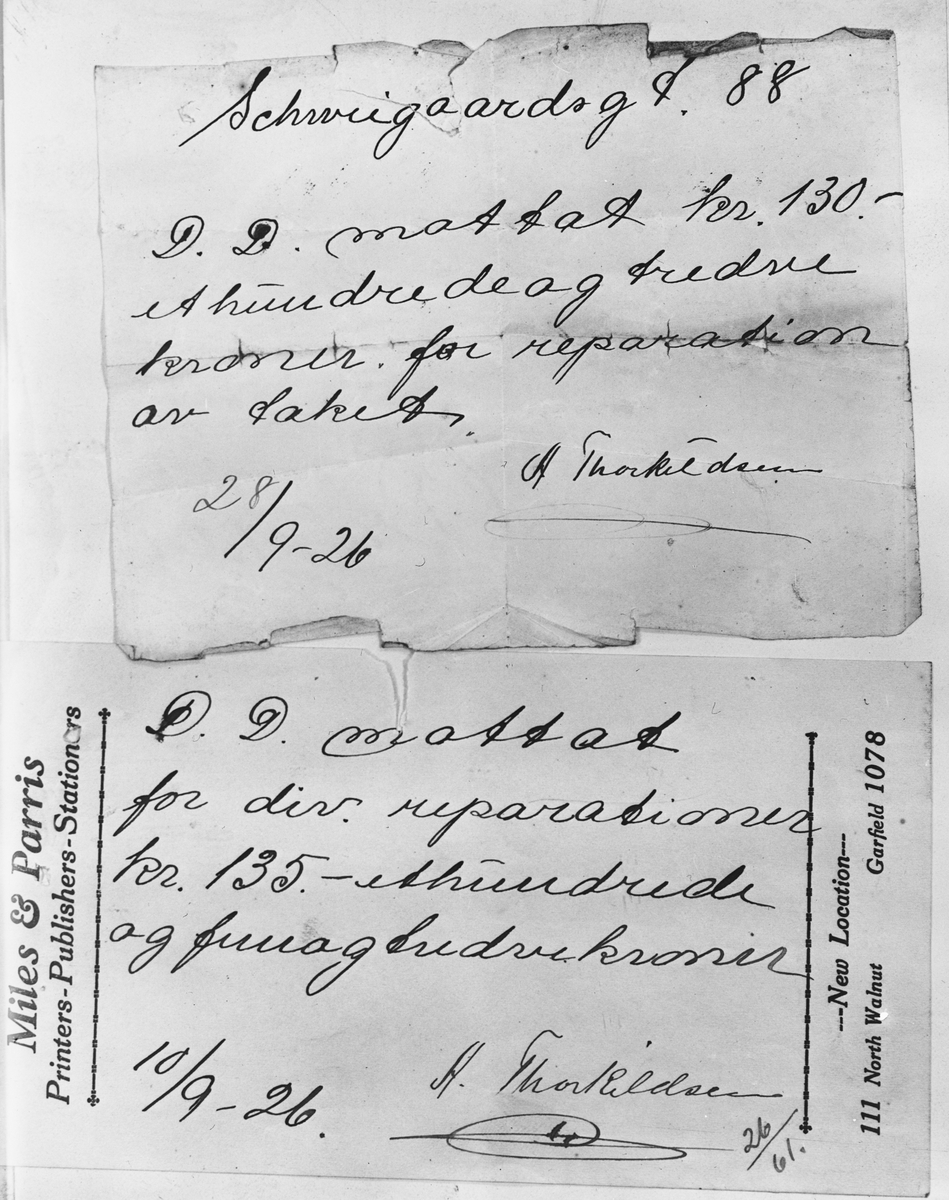 Schweigaardsgt. 88
D. D. mottat kr. 130.-
ethundredeogtredve
kroner. for reparation
av taket.
A Thorkildsen
28/9-26
D. D. mottat
for div. reparationer
kr. 135.- ethundrede
og femogtredvekroner
10/9-26.
A. Thorkildsen
26/61.
Miles & Parris
Printers-Publishers-Stationers
---New Location---
111 North Walnut Garfield 1078